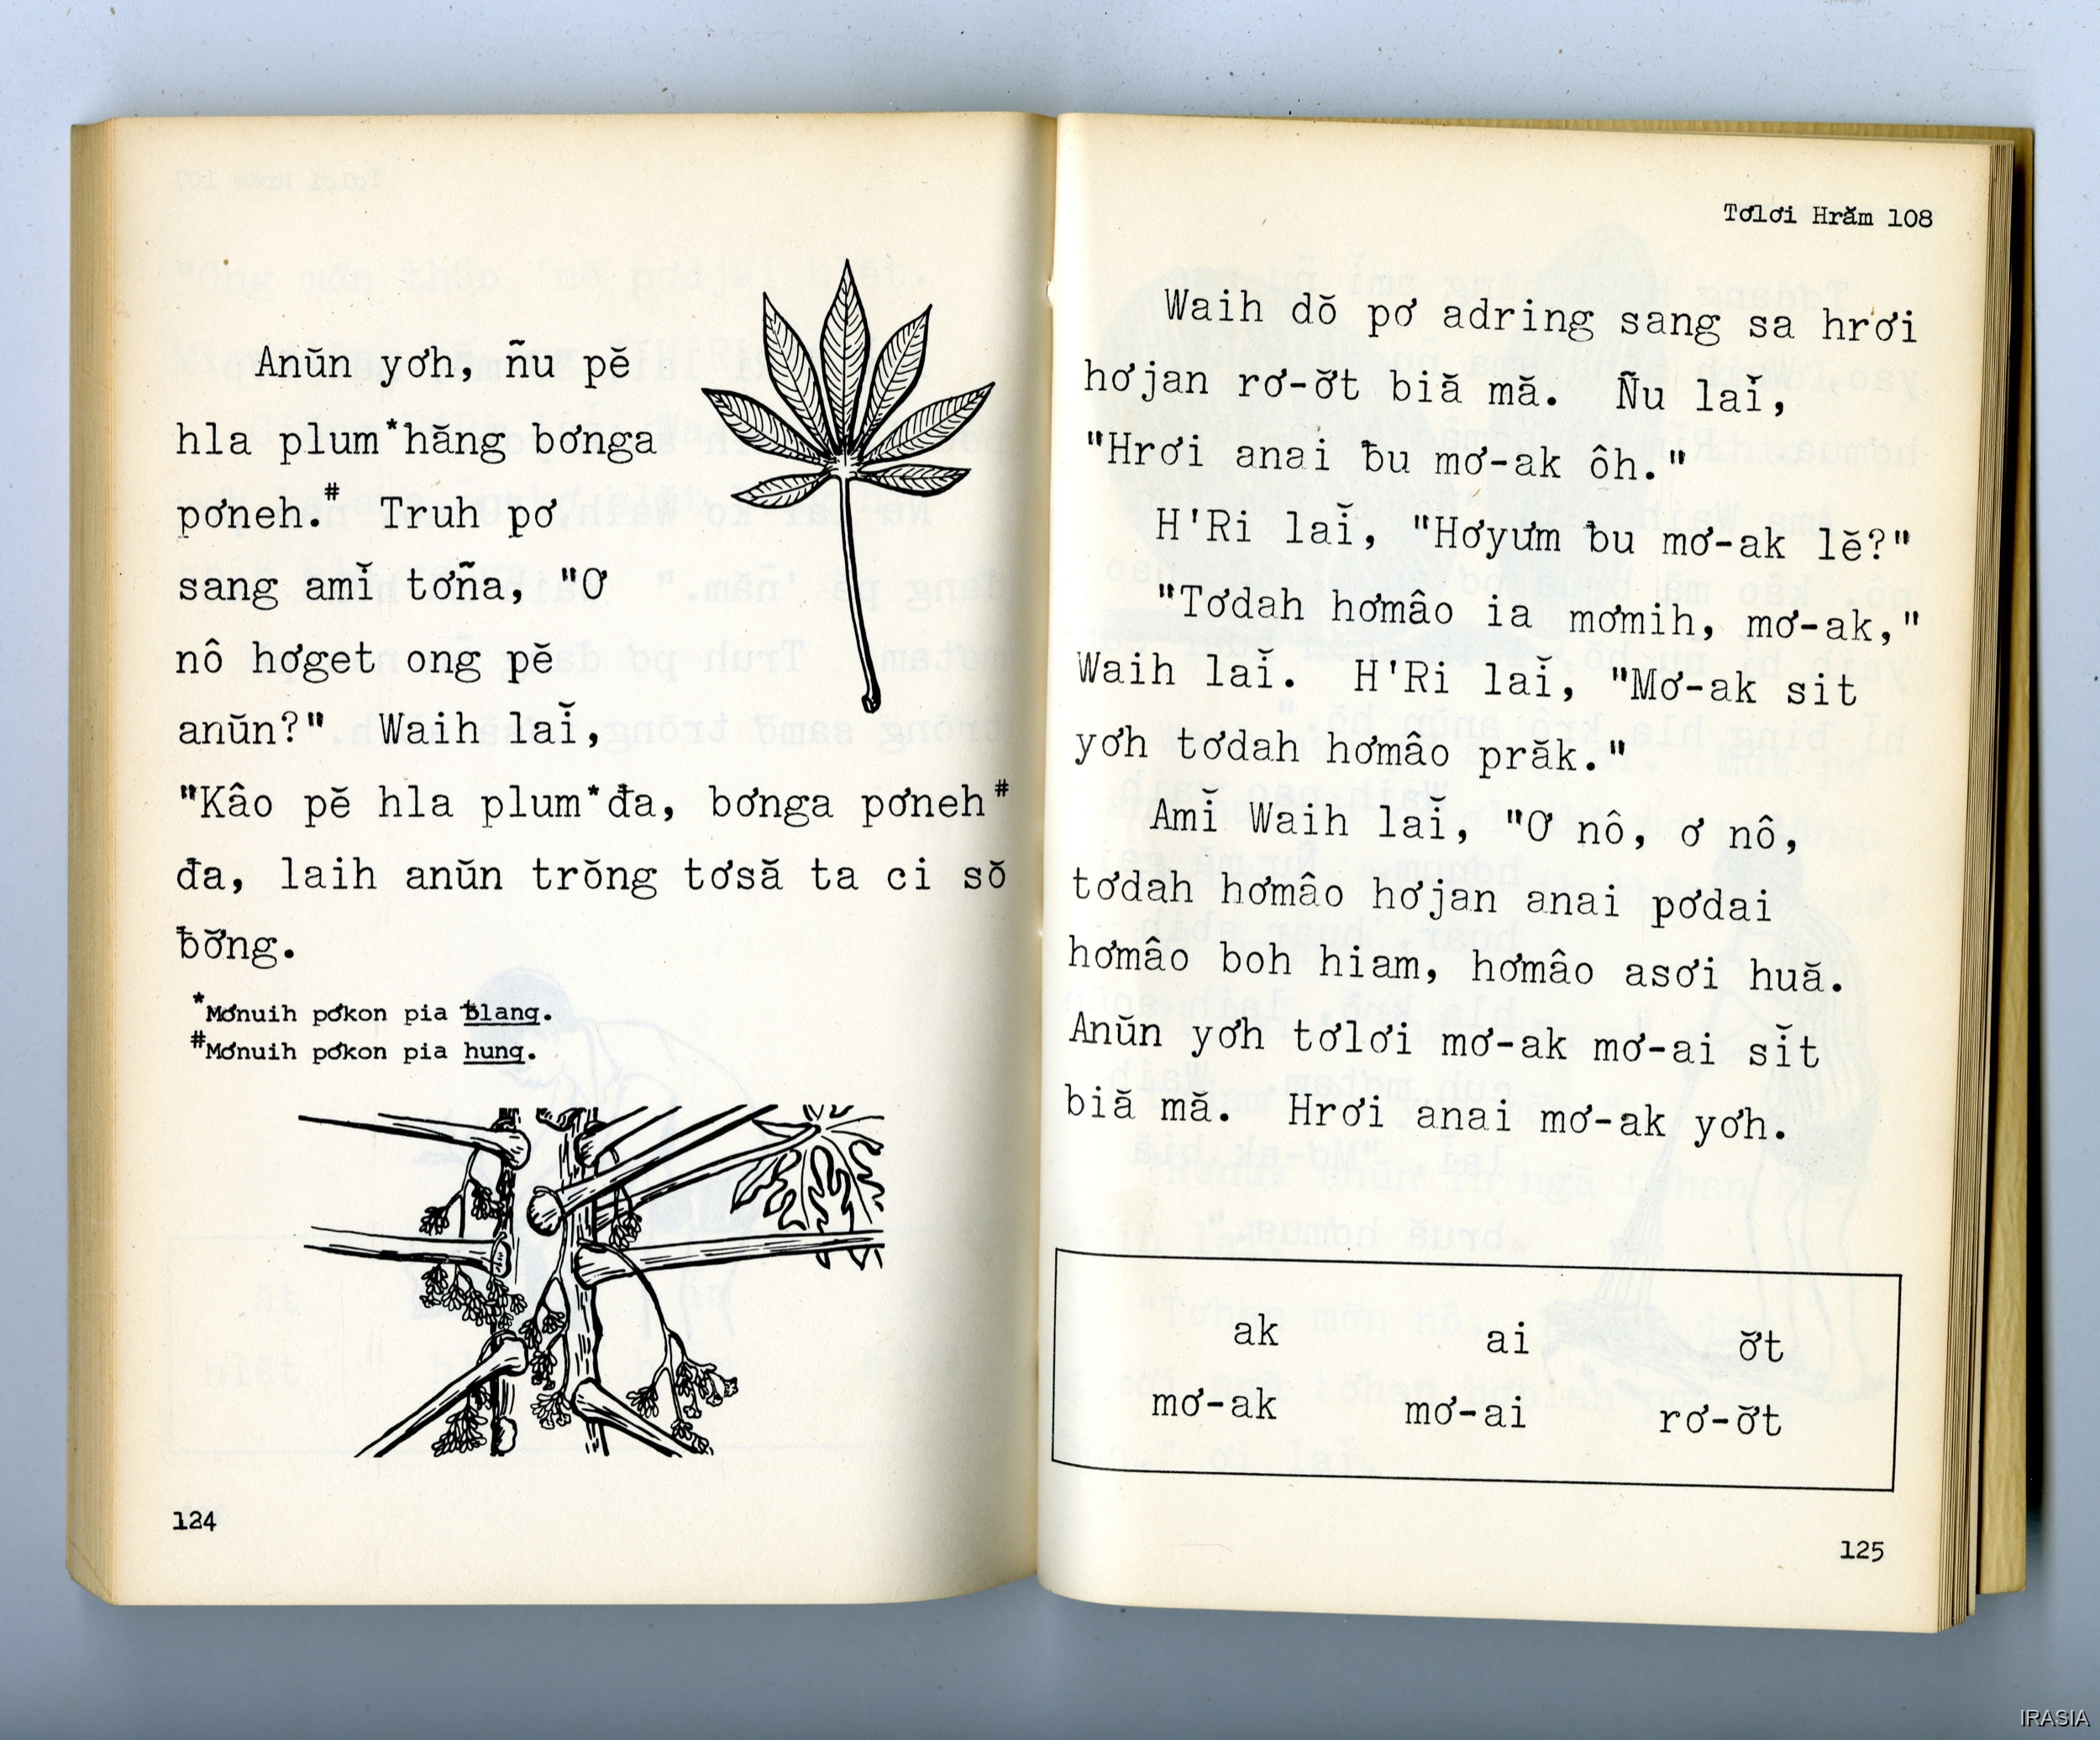 Anŭn yơh, ñu pĕ
hla plum*hăng bơnga
pơneh.# Truh pơ
sang amĭ tơña, "Ơ
nô hơget ong pĕ
anŭn?" Waih laĭ,
"Kâo pĕ hla plum*đa, bơnga pơneh#
đa, laih anŭn trŏng tơsă ta ci sŏ
ƀơ̆ng.
*Mơnuih pơkon pia ƀlang.
#Mơnuih pơkon pia hung.
124
Tơlơi Hrăm 108
Waih dŏ pơ adring sang sa hrơi
hơjan rơ-ơ̆t biă mă. Ñu laĭ,
"Hrơi anai ƀu mơ-ak ôh."
H'Ri laĭ, "Hơyưm ƀu mơ-ak lĕ?"
"Tơdah hơmâo ia mơmih, mơ-ak,"
Waih laĭ. H'Ri laĭ, "Mơ-ak sit
yơh tơdah hơmâo prăk."
Amĭ Waih laĭ, "Ơ nô, ơ nô,
tơdah hơmâo hơjan anai pơdai
hơmâo boh hiam, hơmâo asơi huă.
Anŭn yơh tơlơi mơ-ak mơ-ai sĭt
biă mă. Hrơi anai mơ-ak yơh.
ak ai ơ̆t
mơ-ak mơ-ai rơ-ơ̆t
125
IRASIA